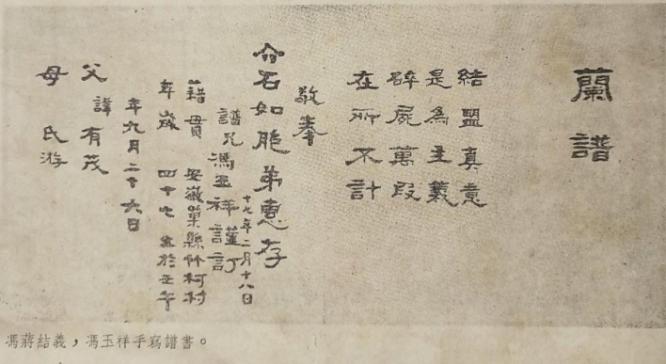 蘭譜
結盟真意
是為主義
碎屍萬段
在所不計
敬奉
介石如胞弟惠存
譜兄馮玉祥謹訂
十七年二月十八日
籍貫 安徽巢縣竹柯村
年歲 四十七 生於壬午
年九月二十六日
父諱有茂
母氏游
馮蔣結義，馮玉祥手寫譜書。